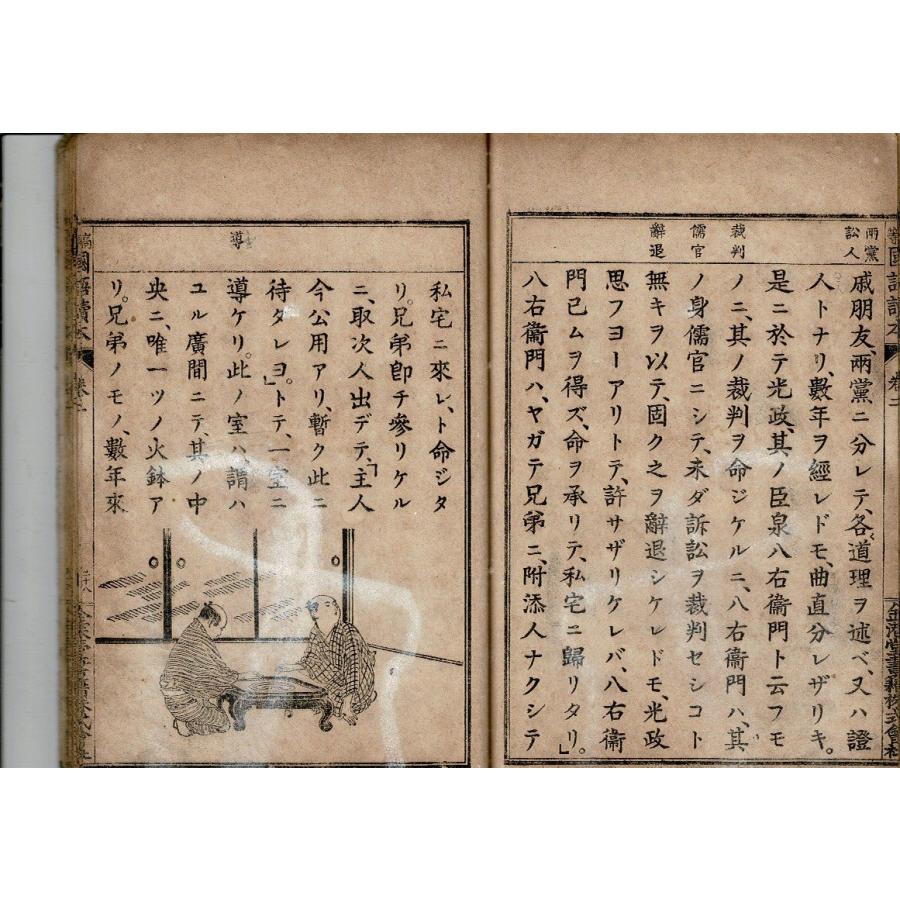 兩黨
訟人
裁判
儒官
辭退
戚朋友、兩黨ニ分レテ、各道理ヲ述ベ、又ハ證
人トナリ、數年ヲ經レドモ、曲直分レザリキ。
是ニ於テ光政、其ノ臣泉八右衞門ト云フモ
ノニ、其ノ裁判ヲ命ジケルニ、八右衞門ハ、其
ノ身儒官ニシテ、未ダ訴訟ヲ裁判セシコト
無キヲ以テ、固ク之ヲ辭退シケレドモ、光政
思フヨーアリトテ、許サザリケレバ、八右衞
門已ムヲ得ズ、命ヲ承リテ、私宅ニ歸リタリ。」
八右衞門ハ、ヤガテ兄弟ニ、附添人ナクシテ
導
私宅ニ來レ、ト命ジタ
リ。兄弟卽チ參リケル
ニ、取次人出デテ、「主人
今公用アリ、暫ク此ニ
待タレヨ。」トテ、一室ニ
導ケリ。此ノ室ハ、謂ハ
ユル廣間ニテ、其ノ中
央ニ、唯一ツノ火鉢ア
リ。兄弟ノモノ、數年來
國語讀本
卷二
金港堂書籍株式會社